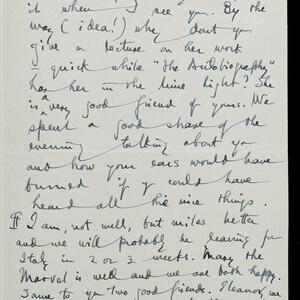 it when I see you. By the
way (idea!) why dont you
give a lecture on her work
quick while "the Autobiography"
has her in the lime light? She
is a very good friend of yours. We
spent a good share of the
evening talking about you
and how your ears would have
burned if you could have
heard all the nice things.
¶ I am, not well, but miles better
and we will probably be leaving for
Italy in 2 or 3 weeks. Mary the
Marvel is well and we are both happy.
Same to you two good friends. Eleanor, we